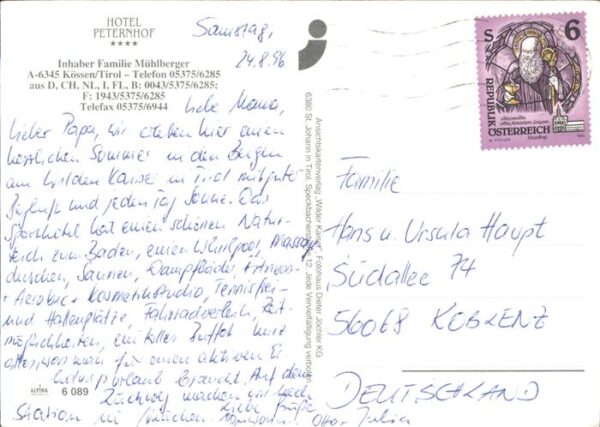 HOTEL
PETERNHOF
****
Inhaber Familie Mühlberger
A-6345 Kössen/Tirol – Telefon 05375/6285
aus D, CH, NL, I, FL, B: 0043/5375/6285;
F: 1943/5375/6285
Telefax 05375/6944
Samstag,
24.8.96
Liebe Mama,
lieber Papa, wir erleben hier einen
herrlichen Sommer in den Bergen
am Wilden Kaiser in Tirol mit guter
Bergluft und jeden Tag Sonne. Das
Sporthotel hat einen schönen Natur-
teich zum Baden, einen Whirlpool, Massage
duschen, Saunen, Dampfbäder, Fitness-
+ Aerobic + Kosmetikstudio, Tennisfrei-
und Hallenplätze, Fahrradverleih, Reit-
möglichkeiten, ein tolles Buffet kurz
alles, was man für einen aktiven Er-
holungsurlaub braucht. Auf dem
Rückweg machen wir noch
Station in München. Liebe Grüße
Otto Julia
ALPINA
6 089
Ansichtskartenverlag „Wilder Kaiser“, Fotohaus Dieter Jöchler KG
6380 St. Johann in Tirol, Speckbacherstraße 12. Jede Vervielfältigung verboten
S 6
REPUBLIK
ÖSTERREICH
Familie
Hans u. Ursula Haupt
Südallee 74
56068 KOBLENZ
DEUTSCHLAND